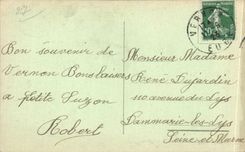 Bon souvenir de
Vernon Bons baisers
a petite Suzon
Robert
VER
EURE
Monsieur Madame
René Dujardin
110 avenue du Lys
Dammarie-les-Lys
Seine et Marne